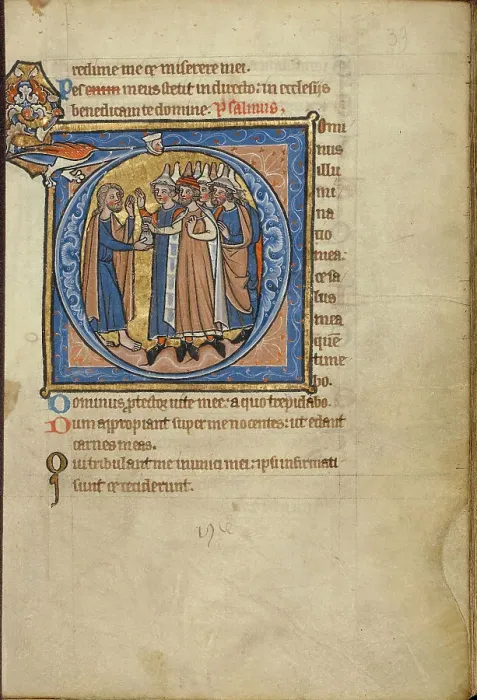 redime me et miserere mei.
Pes enim meus stetit in directo: in ecclesiis
benedicam te domine. Psalmus,
Domi
nus
illu
mi
na
tio
mea:
et sa
lus
mea
que
time
bo.
Dominus protector vite mee: a quo trepidabo.
Dum appropiant super me nocentes: ut edant
carnes meas.
Qui tribulant me inimici mei: ipsi infirmati
sunt et ceciderunt.